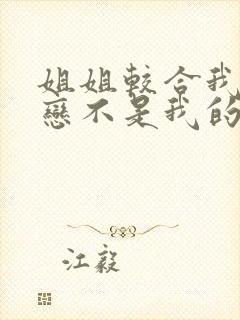 姐姐較合我
戀不是我的
江毅